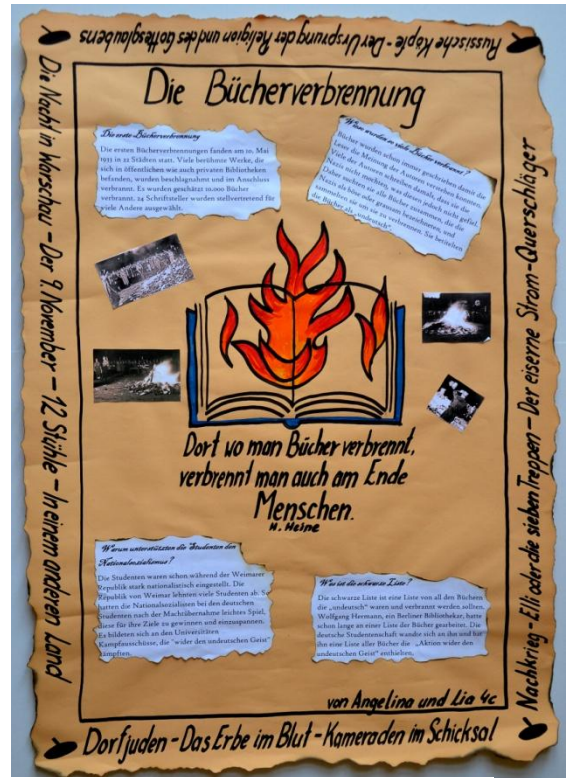 Russische Köpfe - Der Ursprung der Religion und des Gottesglaubens
Die Bücherverbrennung
Die erste Bücherverbrennung
Die ersten Bücherverbrennungen fanden am 10. Mai
1933 in 22 Städten statt. Viele berühmte Werke, die
sich in öffentlichen wie auch privaten Bibliotheken
befanden, wurden beschlagnahmt und im Anschluss
verbrannt. Es wurden geschätzt 20.000 Bücher
verbrannt. 24 Schriftsteller wurden stellvertretend für
viele Andere ausgewählt.
Wieso wurden so viele Bücher verbrannt?
Bücher wurden schon immer geschrieben damit die
Leser die Meinung der Autoren verstehen konnten.
Viele der Autoren schrieben damals, dass sie die
Nazis nicht mochten, was diesen jedoch nicht gefiel.
Daher suchten sie alle Bücher zusammen, die die
Nazis als böse oder grausam bezeichneten, und
sammelten sie um sie zu verbrennen. Sie betitelten
die Bücher als „undeutsch".
Dort wo man Bücher verbrennt,
verbrennt man auch am Ende
Menschen.
H. Heine
Warum unterstützten die Studenten den
Nationalsozialismus?
Die Studenten waren schon während der Weimarer
Republik stark nationalistisch eingestellt. Die
Republik von Weimar lehnten viele Studenten ab. So
hatten die Nationalsozialisten bei den deutschen
Studenten nach der Machtübernahme leichtes Spiel,
diese für ihre Ziele zu gewinnen und einzuspannen.
Es bildeten sich an den Universitäten
Kampfausschüsse, die "wider den undeutschen Geist"
kämpften.
Was ist die schwarze Liste?
Die schwarze Liste ist eine Liste von all den Büchern
die „undeutsch" waren und verbrannt werden sollten.
Wolfgang Hermann, ein Berliner Bibliothekar, hatte
schon lange an einer Liste der Bücher gearbeitet. Die
deutsche Studentenschaft wandte sich an ihn und bat
ihn eine Liste aller Bücher die „Aktion wider den
undeutschen Geist" enthielten.
von Angelina und Lia 4c
Die Nacht in Warschau - Der 9. November - 12 Stühle - In einem anderen Land
Nachkrieg - Elli oder die sieben Treppen - Der eiserne Strom - Querschläger
Dorfjuden - Das Erbe im Blut - Kameraden im Schicksal